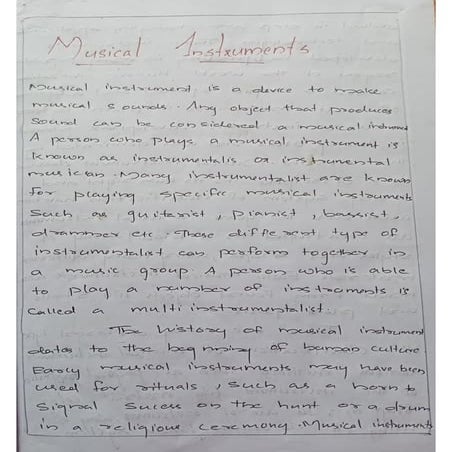 Musical Instruments
Musical instrument is a device to make
musical sounds. Any object that produces
sound can be considered a musical instrument
A person who plays a musical instrument is
known as instrumentalis or instrumental
musician. Many instrumentalist are known
for playing specific musical instruments
Such as guitarist, pianist, bassist,
drammer etc. These different type of
instrumentalist can perform together in
a music group. A person who is able
to play a number of instruments is
called a multi instrumentalist.
The history of musical instrument
dates to the beginning of human culture
Early musical instruments may have been
used for rituals, such as a horn to
Signal Sucess on the hunt or a drum
in a religious ceremony. Musical instruments